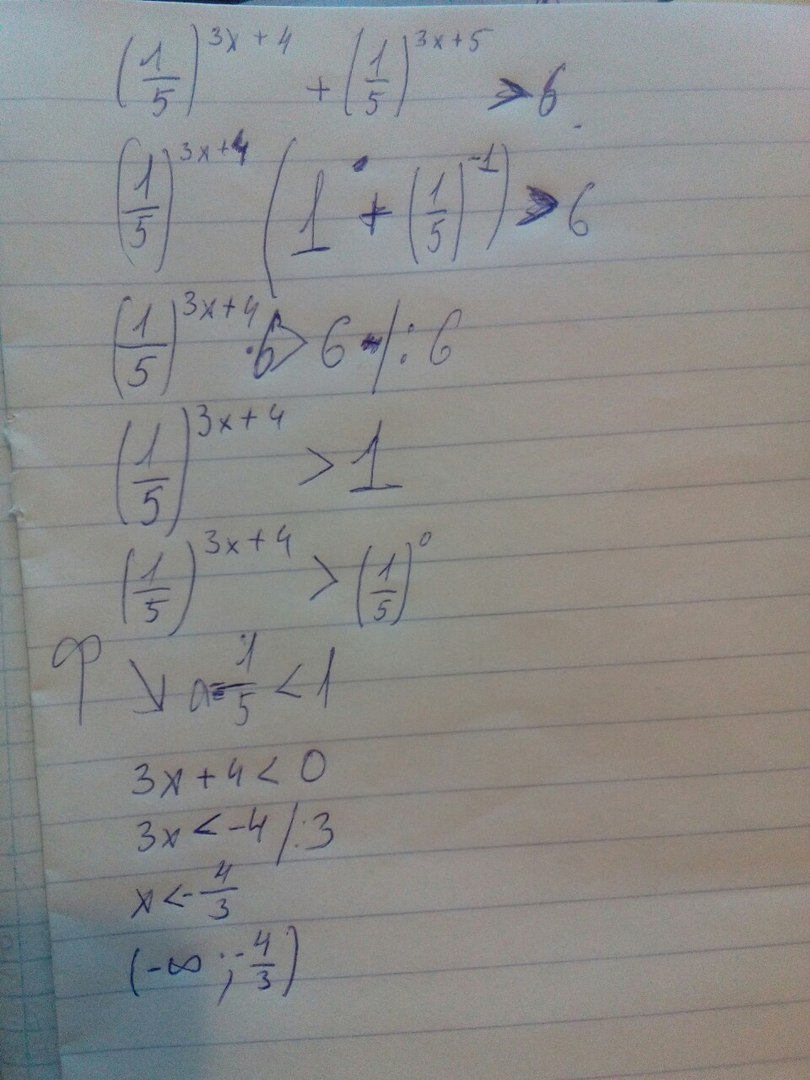 (1/5)^(3x+4) + (1/5)^(3x+5) > 6
(1/5)^(3x+4) (1 + (1/5)^(-1)) > 6
(1/5)^(3x+4) · 6 > 6 /:6
(1/5)^(3x+4) > 1
(1/5)^(3x+4) > (1/5)^0
φ ↘ a=1/5 < 1
3x+4 < 0
3x < -4 /:3
x < -4/3
(-∞; -4/3)